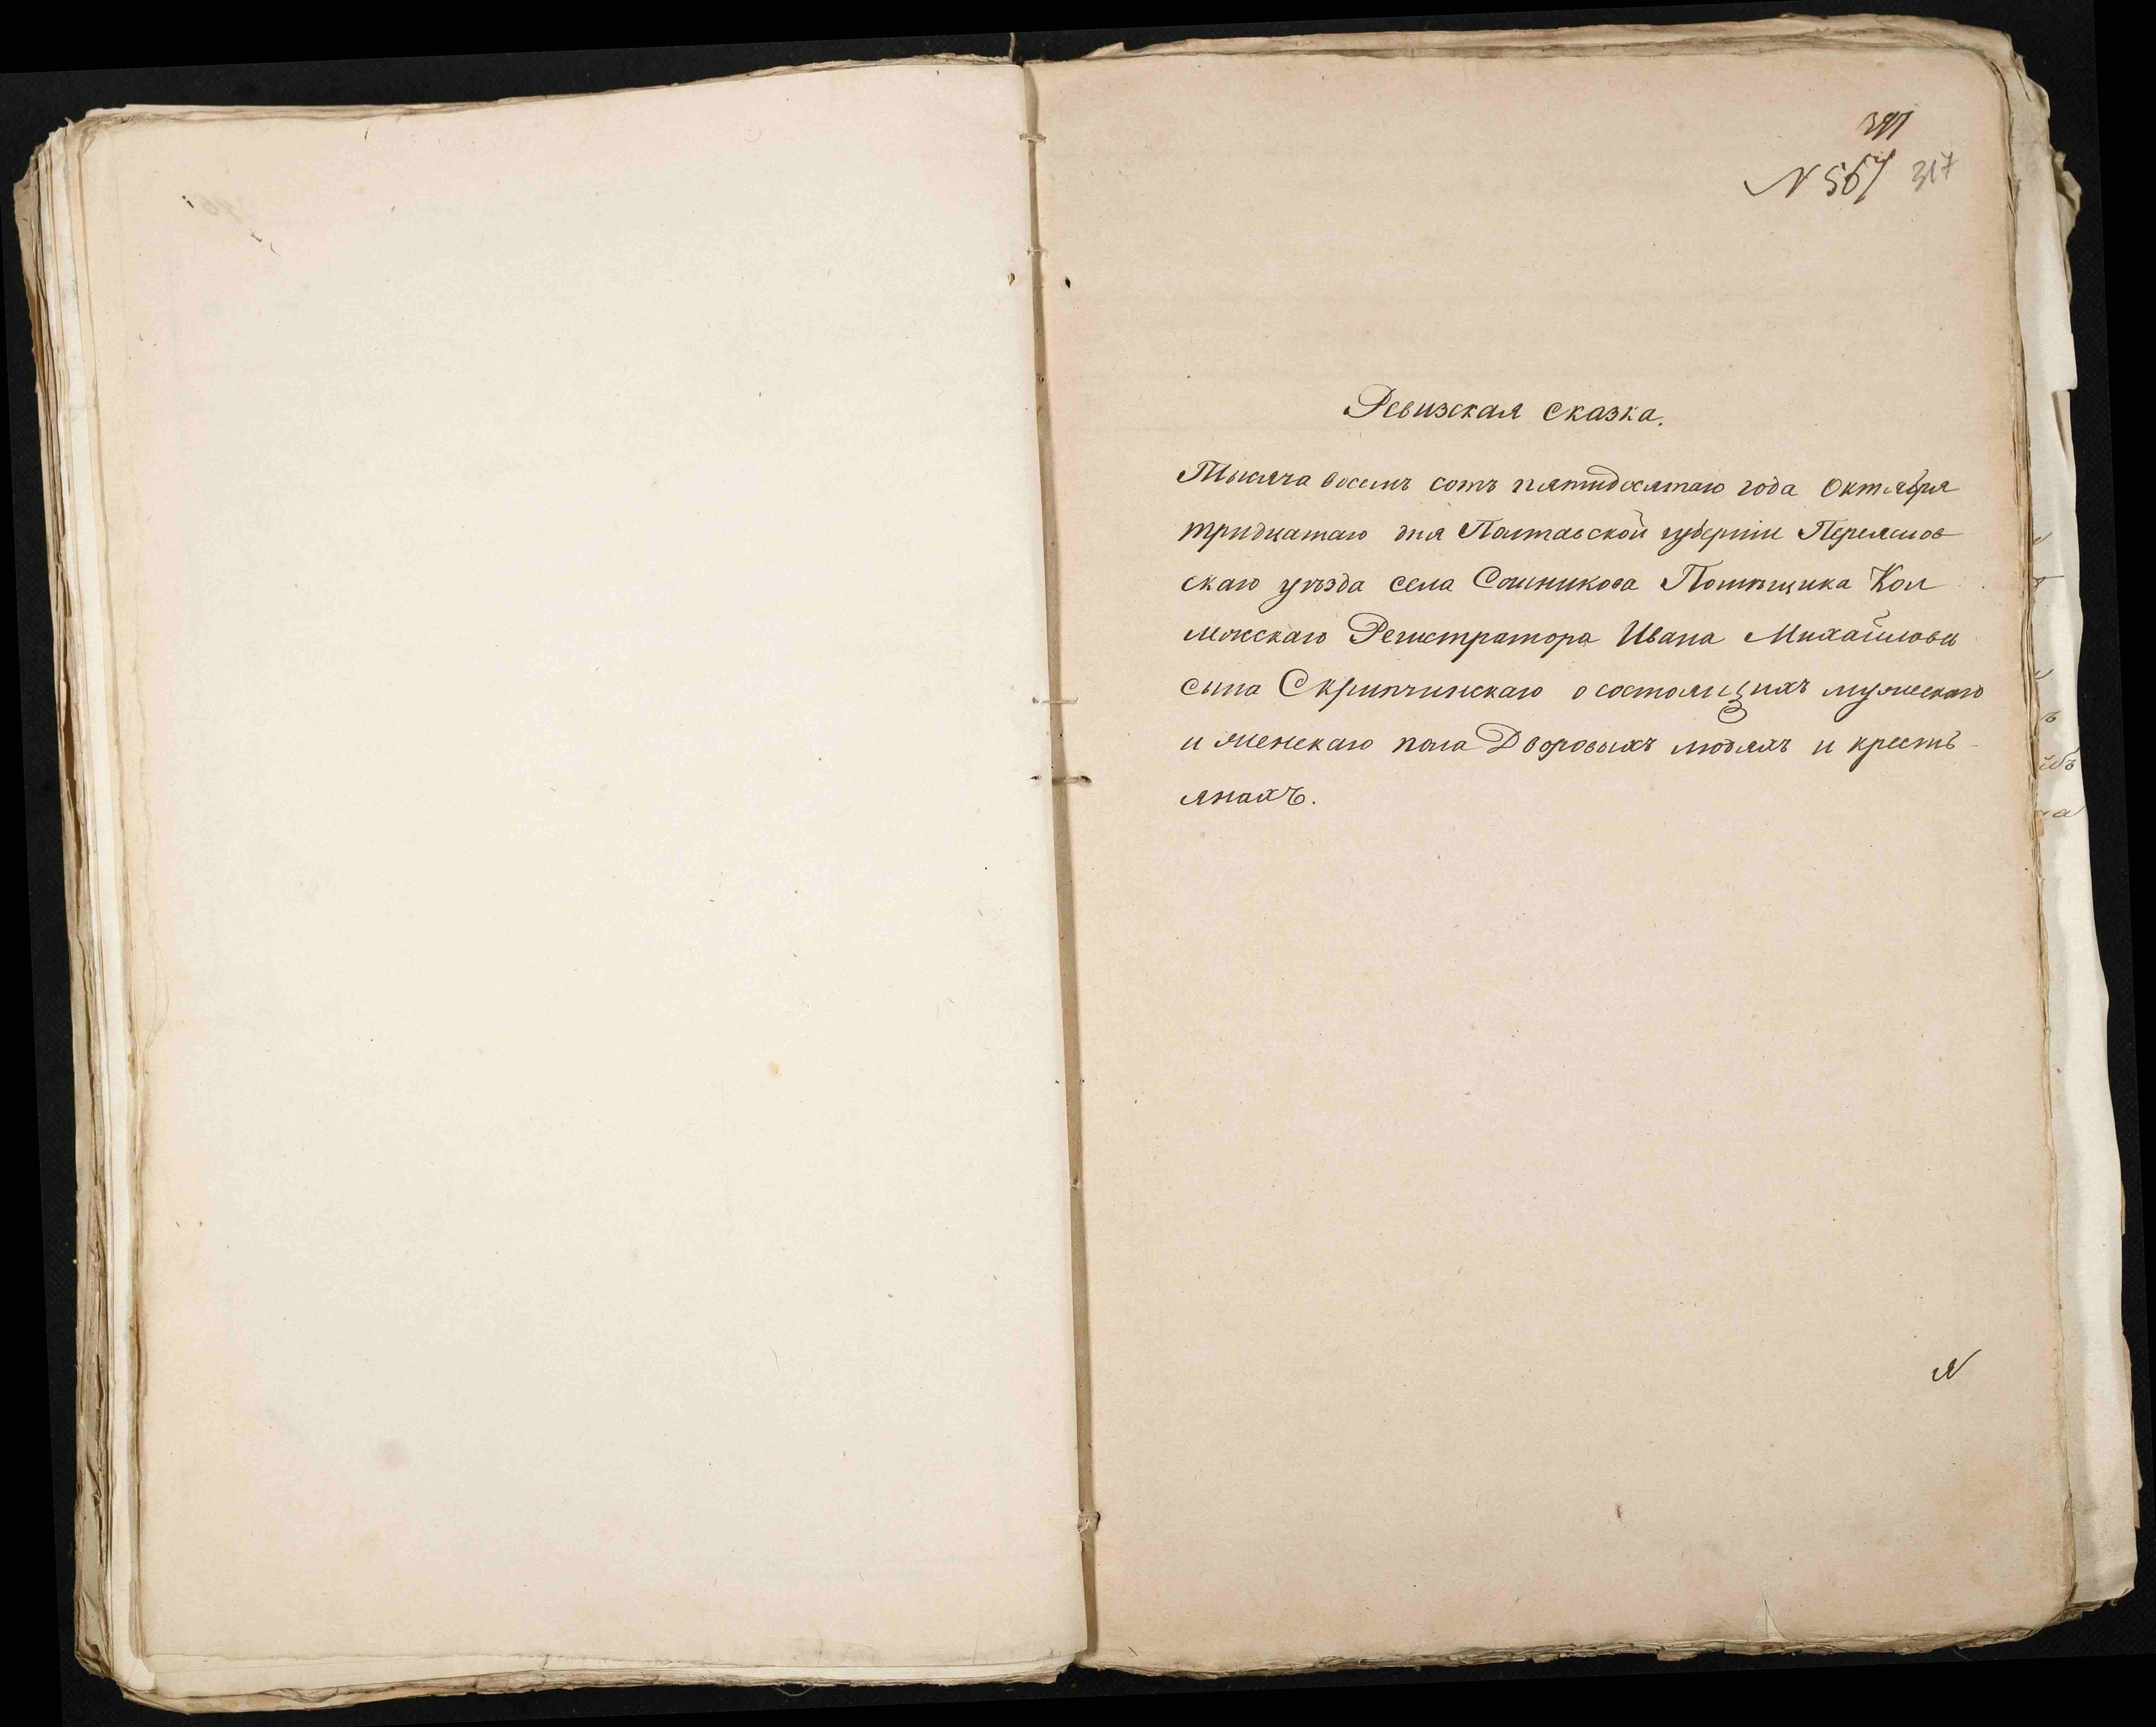 № 567 317
Ревизская сказка.
Тысяча восемь сотъ пятидесятаго года Октября
тридцатаго дня Полтавской губерніи Переяслов
скаго уѣзда села Сошникова Помѣщика Кол
лежскаго Регистратора Ивана Михайлова
сына Скрипчинскаго о состоящихъ мужескаго
и женскаго пола Дворовыхъ людяхъ и кресть-
янахъ.